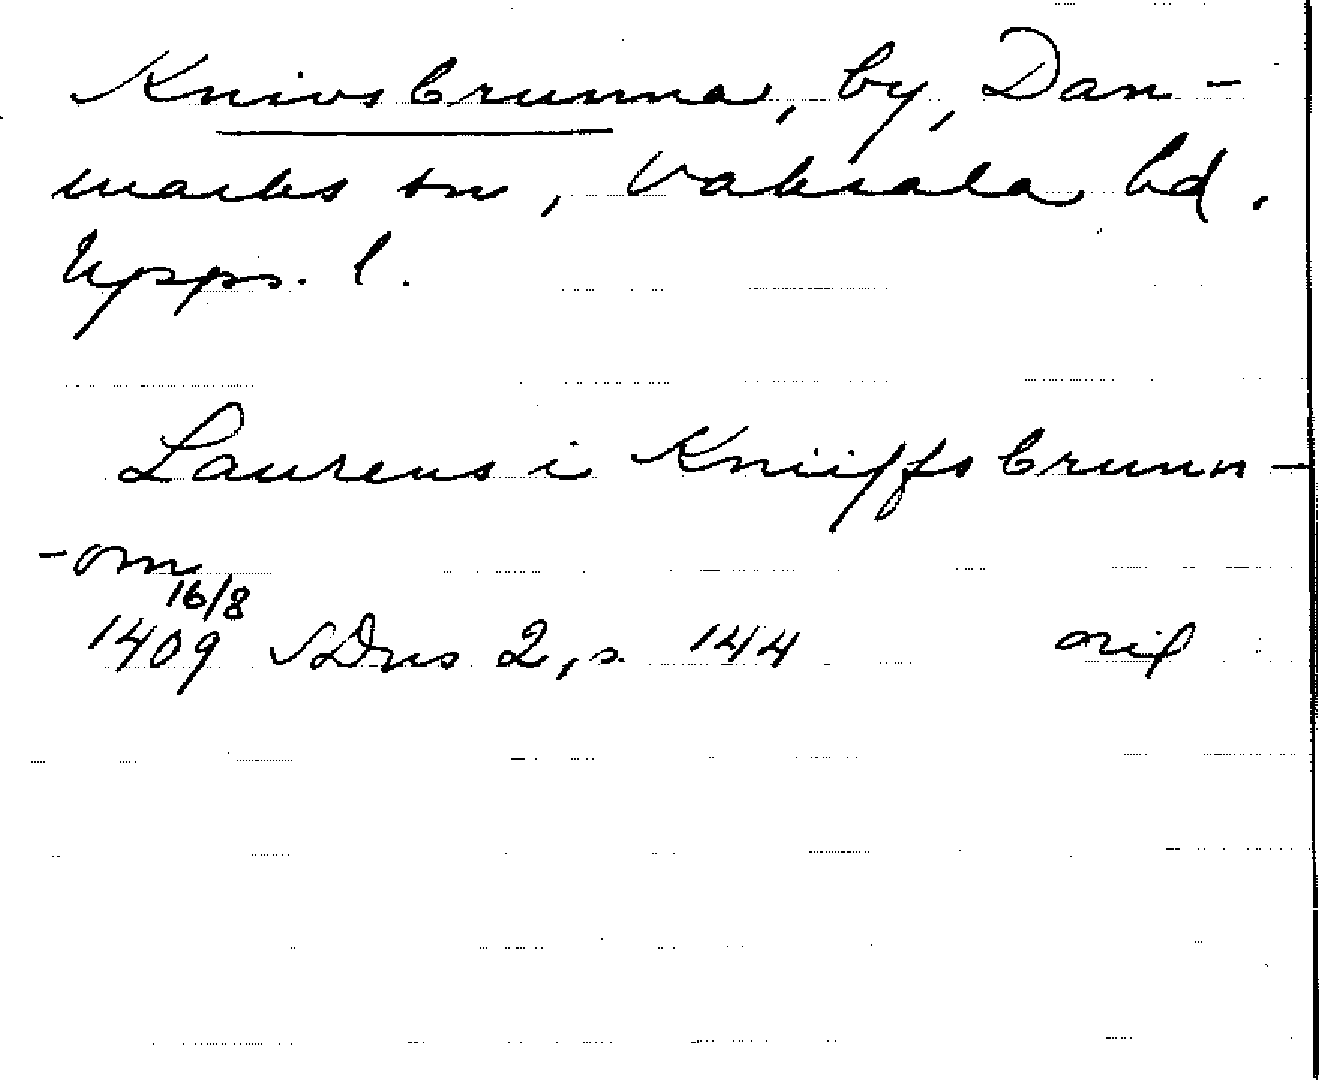 Knivsbrunna, by, Dan-
marks sn, Vaksala hd.
Upps. l.
Laurens i Kniiffsbrunn-
-om
16/8
1409 SDns 2, s. 144 orig